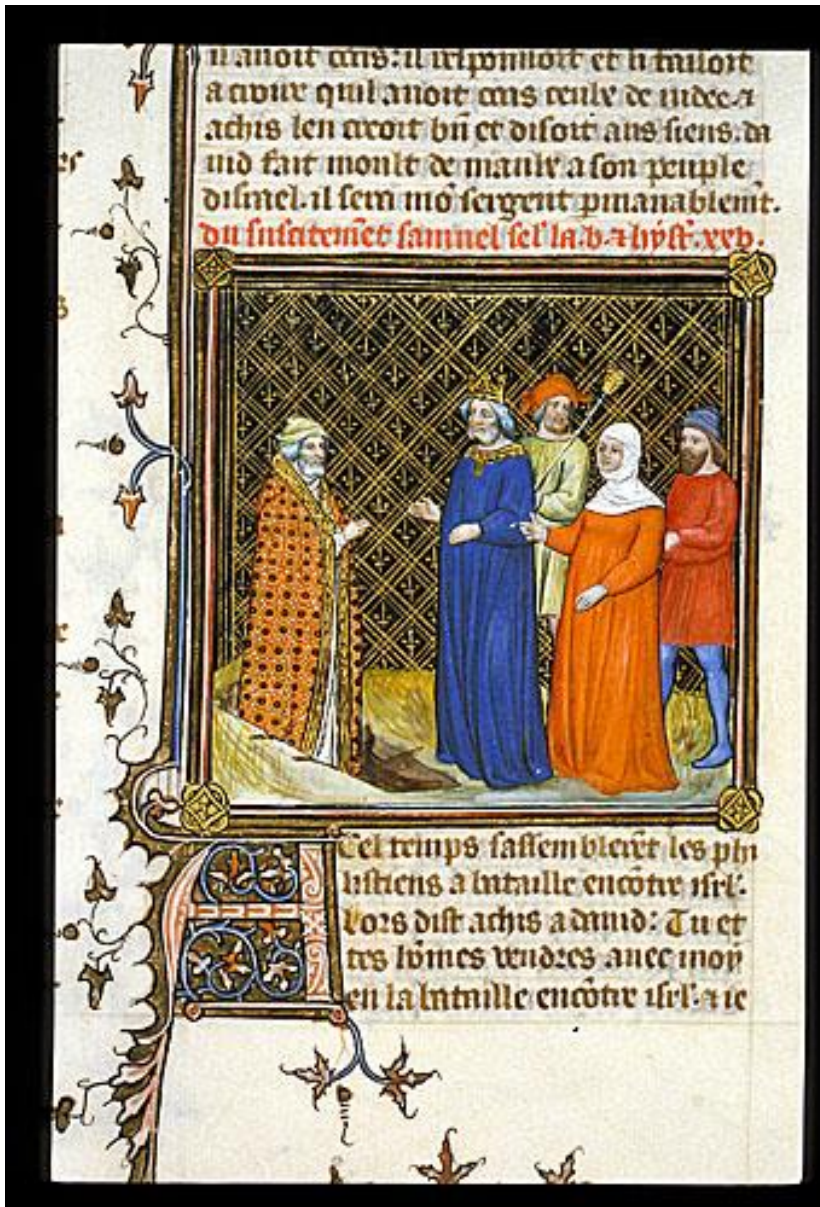 il auoit cens: il respondoit et li failoit
a croire quil auoit cens ceulz de iudee. ⁊
achis len creoit bñ et disoit aus siens. da
uid fait moult de maulz a son peuple
disrael. il sera mõ sergent pmanablemt.
du suscitemẽt samuel sel' la. b. ⁊ hyst'. xxv.
A cel temps sassemblerẽt les phi
listiens a bataille encõtre isrl'.
Lors dist achis a dauid: Tu et
tes hõmes vendres auec moy
en la bataille encõtre isrl'. ⁊ ie